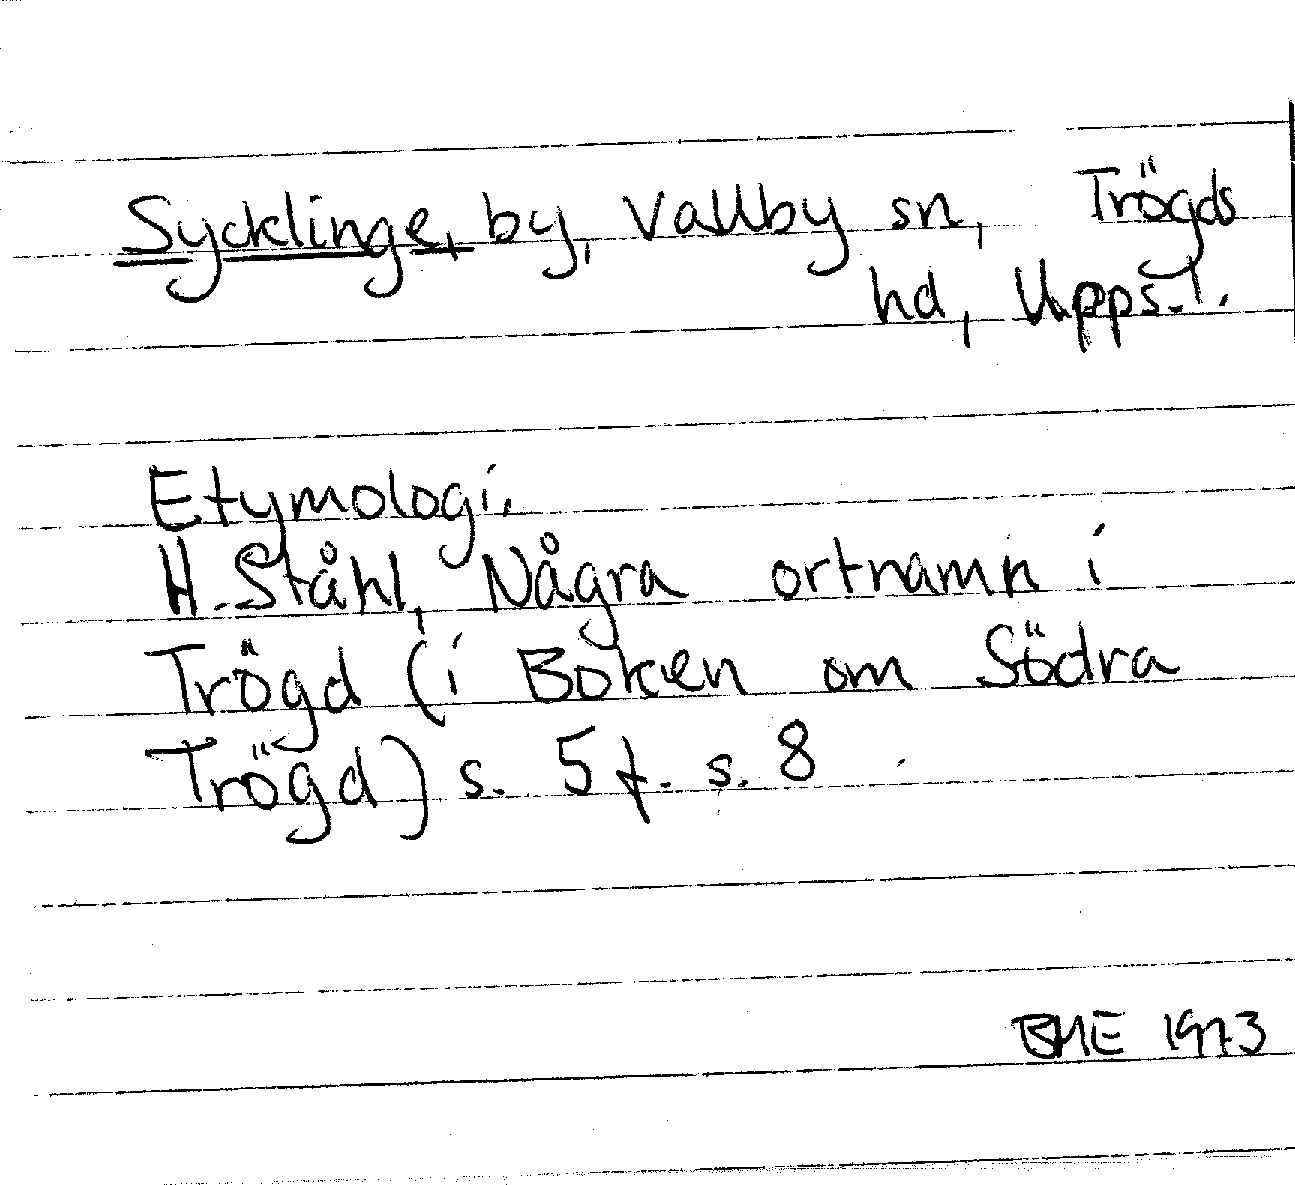 Sycklinge, by, Vallby sn, Trögds
hd, Upps.l.
Etymologi.
H. Ståhl, Några ortnamn i
Trögd (i Boken om Södra
Trögd) s. 5 f. s. 8
BME 1973